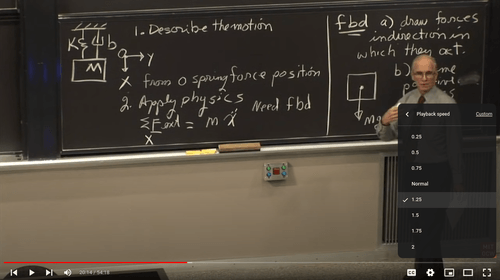 1. Describe the motion
K b
M
y
X from 0 spring force position
2. Apply physics
Need fbd
ΣF ext = m ẍ
X
fbd a) draw forces
in direction in
which they act.
b)
Mg
Playback speed Custom
0.25
0.5
0.75
Normal
1.25
1.5
1.75
2
20:14 / 54:18